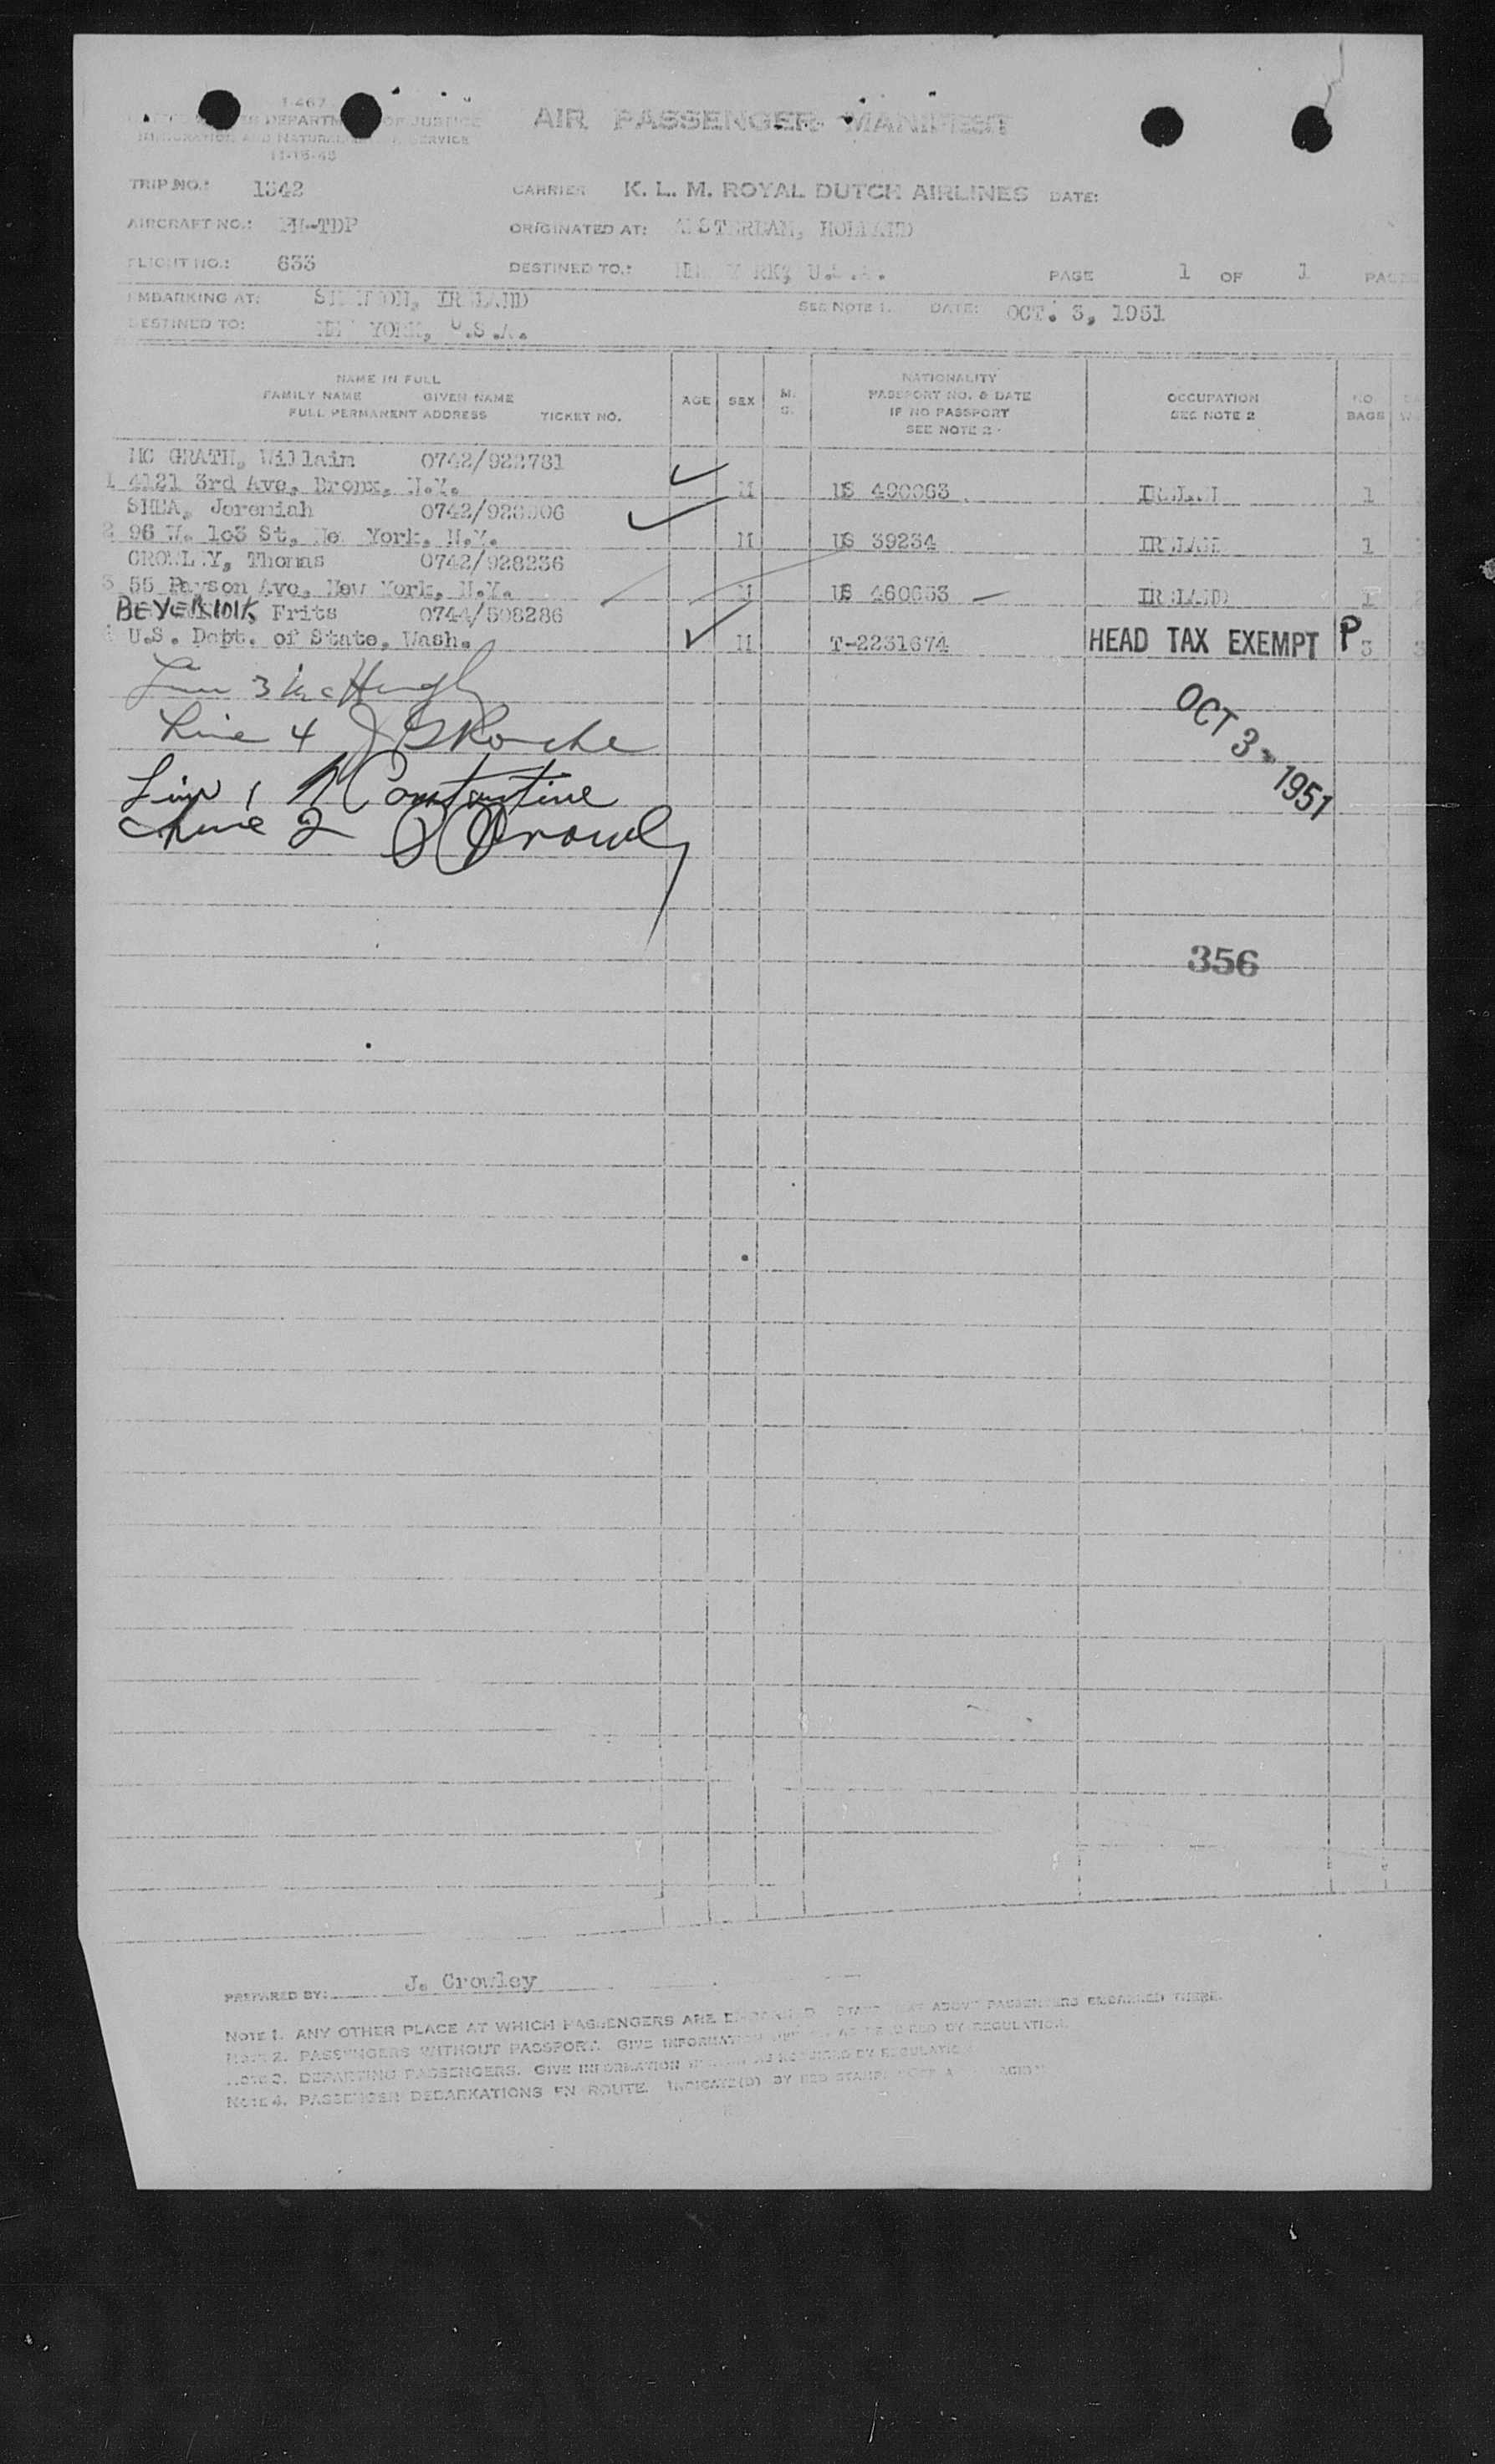 I-467
DEPARTMENT OF JUSTICE
IMMIGRATION AND NATURALIZATION SERVICE
11-15-45
AIR PASSENGER MANIFEST
TRIP NO.: 1342 CARRIER K. L. M. ROYAL DUTCH AIRLINES DATE:
AIRCRAFT NO.: PH-TDP ORIGINATED AT: AMSTERDAM, HOLLAND
FLIGHT NO.: 633 DESTINED TO.: NEW YORK, U.S.A. PAGE 1 OF 1
EMBARKING AT: SHANNON, IRELAND SEE NOTE 1. DATE: OCT. 3, 1951
DESTINED TO: NEW YORK, U.S.A.
NAME IN FULL
FAMILY NAME GIVEN NAME
FULL PERMANENT ADDRESS TICKET NO.
AGE SEX M. S.
NATIONALITY
PASSPORT NO. & DATE
IF NO PASSPORT
SEE NOTE 2
OCCUPATION
SEE NOTE 2
NO. BAGS
MC GRATH, Willaim 0742/922781
1 4121 3rd Ave, Bronx, N.Y. M US 490063 IRELAND 1
SHEA, Jeremiah
2 96 W. 103 St, New York, N.Y. M US 39234 IRELAND 1
CROWLEY, Thomas 0742/928236
3 55 Payson Ave, New York, N.Y. M US 460653 IRELAND 1
BEYERINK, Frits 0744/508286
4 U.S. Dept. of State, Wash. M T-2231674 HEAD TAX EXEMPT P 3
Line 3 McHugh
Line 4 J G Roche
Line 1 N Constantine
Line 2
OCT 3 - 1951
356
PREPARED BY: J. Crowley
NOTE 1. ANY OTHER PLACE AT WHICH PASSENGERS ARE EMBARKED. STATE THAT ABOVE PASSENGERS EMBARKED THERE.
NOTE 2. PASSENGERS WITHOUT PASSPORT. GIVE INFORMATION AS REQUIRED BY REGULATION.
NOTE 3. DEPARTING PASSENGERS. GIVE INFORMATION AS REQUIRED BY REGULATION
NOTE 4. PASSENGER DEBARKATIONS EN ROUTE. INDICATE(D) BY RED STAMP